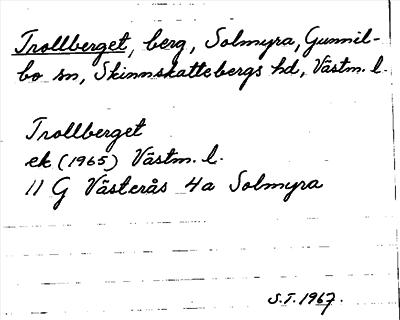 Trollberget, berg, Solmyra, Gunnil-
bo sn, Skinnskattebergs hd, Västm. l.
Trollberget
ek (1965) Västm. l.
11 G Västerås 4a Solmyra
S.T. 1967.